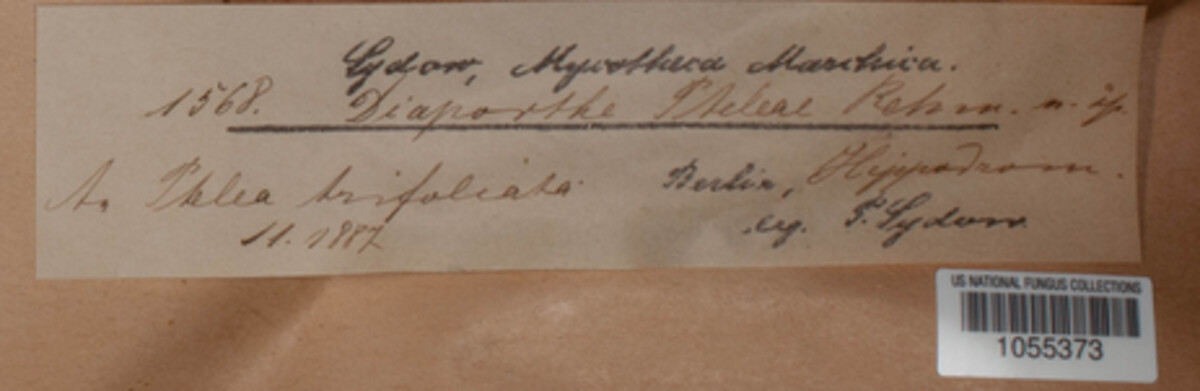 Sydow, Mycotheca Marchica.
1568. Diaporthe Pteleae Rehm. n. sp.
An Ptelea trifoliata Berlin, Hippodrom.
11. 1887 leg. P. Sydow
US NATIONAL FUNGUS COLLECTIONS
1055373